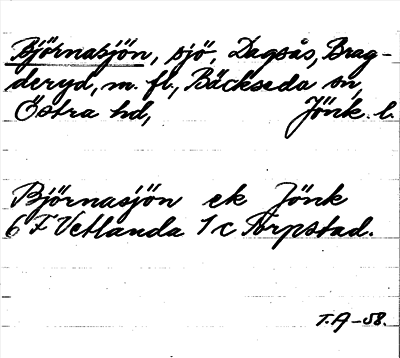 Björnasjön, sjö, Dagsås, Brag-
deryd, m. fl., Bäckseda sn,
Östra hd, Jönk. l.
Björnasjön ek Jönk
6 F Vetlanda 1 c Torpstad.
T.A -58.